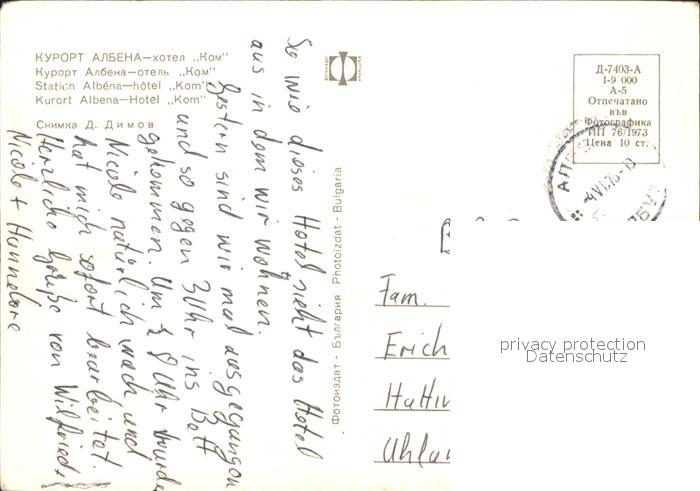 КУРОРТ АЛБЕНА—хотел „Ком"
Курорт Албена—отель „Ком"
Station Albéna—hôtel „Kom"
Kurort Albena—Hotel „Kom"
Снимка Д. Димов
So wie dieses Hotel sieht das Hotel
aus in dem wir wohnen.
Gestern sind wir mal ausgegangen
und so gegen 3 Uhr ins Bett
gekommen. Um 8 Uhr wurde
Nicole natürlich wach und
hat mich sofort bearbeitet.
Herzliche Grüße von Wilfried,
Nicole + Hannelore
Фотоиздат - България Photoizdat - Bulgaria
Д-7403-А
I-9 000
А-5
Отпечатано
във
Фотографика
ИП 76/1973
Цена 10 ст.
Fam.
Erich
privacy protection
Datenschutz